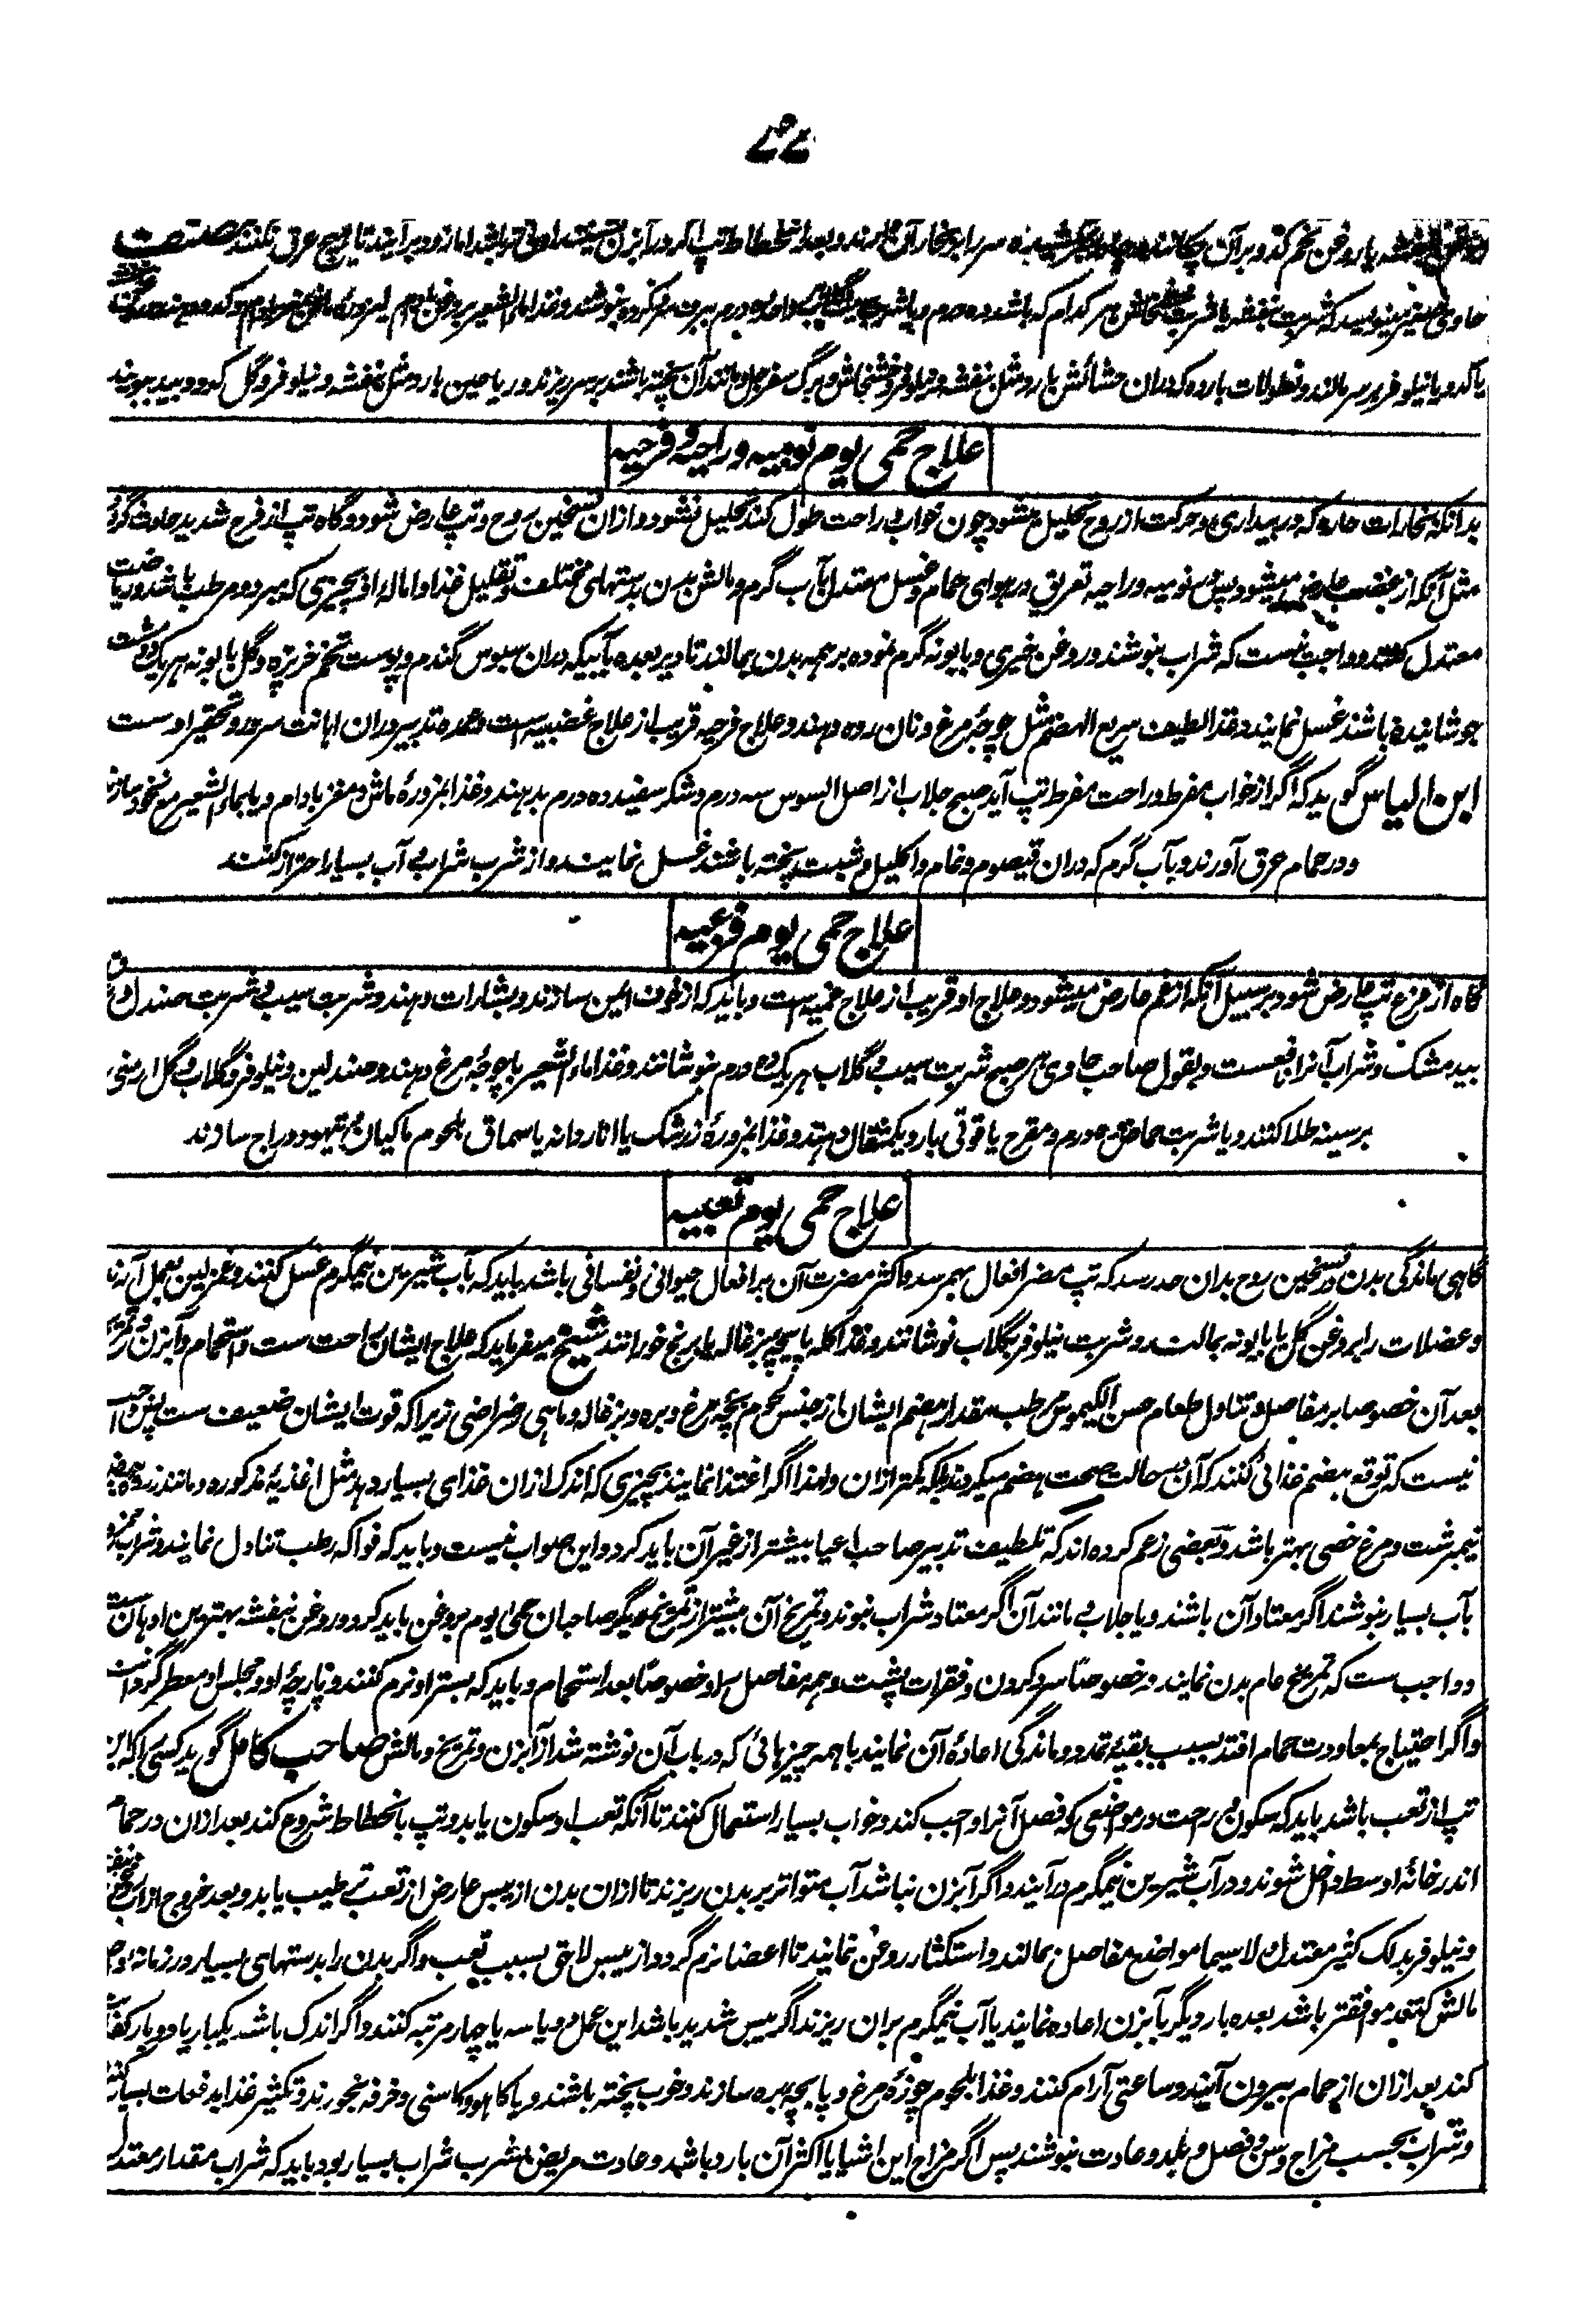 ۷۷
روغن بنفشه یا روغن تخم کدو بر آن چکانیده سر را بر بخار آن دارند و بعد انحطاط تپ اگر در آبزن نشینند اولی تر باشد اما زود برآیند تا هیچ عرق نکنند مصنف
حاوی صغیر مینویسد که شربت بنفشه یا شربت خشخاش هر کدام که باشد ده درم بنوشند و غذا ماءالشعیر بروغن بادام
یا کدو یا نیلوفر بر سر مالند و نطولات بارده که دران حشائش بارد مثل بنفشه و نیلوفر و خشخاش و برگ سفرجل و مانند آن پخته باشند بر سر ریزند و ریاحین بارد مثل بنفشه و نیلوفر و گل کدو و بید ببویند
علاج حمی یوم نومیه و راحیه و فرحیه
بدانکه بخارات حاره که در بیداری و حرکت از روح تحلیل میشود چون خواب و راحت طول کند تحلیل نشود و ازان تسخین روح و تپ عارض شود و گاه تپ از فرح شدید حادث گردد
مثل آنکه از غضب عارض میشود پس در نومیه و راحیه تعریق در هوای حمام و غسل معتدل بآب گرم و مالش بدن بدستهای مختلف و تقلیل غذا و اماله او بچیزی که مبرد و مرطب باشد و ریاضت
معتدل کنند و واجب نیست که شراب بنوشند و روغن خیری و بابونه گرم نموده بر همه بدن بمالند تا دیر بعده بآبیکه دران سبوس گندم و پوست تخم خرپزه و گل بابونه هر یک دو مشت
جوشانیده باشند غسل نمایند و غذا لطیف سریع الهضم مثل چوجهٔ مرغ و نان روه دهند و علاج فرحیه قریب از علاج غضبیه است و عمده تدبیر دران اهانت سرور و تحقیر اوست
ابن الیاس گوید که اگر از خواب مفرط و راحت مفرط تپ آید صبح جلاب از اصل السوس سه درم و شکر سفید ده درم بدهند و غذا مزورهٔ ماش و مغز بادام و یا ماءالشعیر مع نخود سازند
و در حمام عرق آورند و بآب گرم که دران قیصوم و نمام و اکلیل و شبت پخته باشند غسل نمایند و از شرب شراب بی آب بسیار احتراز کنند
علاج حمی یوم فزعیه
گاه از فزع تپ عارض شود بر سبیل آنکه از غم عارض میشود و علاج او قریب از علاج غمیه است و باید که از خوف ایمن سازند و بشارات دهند و شربت سیب و شربت صندل و عرق
بید مشک و شراب آنرا نافعست و بقول صاحب حاوی هر صبح شربت سیب و گلاب هر یک ده درم بنوشانند و غذا ماءالشعیر با چوجهٔ مرغ دهند و صندلین و نیلوفر و گلاب و گل ارمنی
بر سینه طلا کنند و یا شربت حماض ده درم و مفرح یاقوتی بارد یکمثقال دهند و غذا مزورهٔ زرشک یا اناردانه یا سماق بلحوم ماکیان و تیهو و دراج سازند
علاج حمی یوم تعبیه
گاهی ماندگی بدن در تسخین روح بدان حد رسد که تپ مضر افعال بهم رسد و اکثر مضرت آن بر افعال حیوانی و نفسانی باشد باید که بآب شیرین نیمگرم غسل کنند و غمز لین بعمل آرند
و عضلات را بروغن گل یا بابونه بمالند و شربت نیلوفر بگلاب نوشانند و غذا کله پاچه بزغاله با برنج خورانند شیخ میفرماید که علاج ایشان راحت ست و استحمام و آبزن و تمریخ
بعد آن خصوصا بر مفاصل و تناول طعام حسن الکیموس مرطب بمقدار هضم ایشان از جنس لحوم بچه مرغ و بره و بزغاله و ماهی رضراضی زیرا که قوت ایشان ضعیف ست پس واجب
نیست که توقع هضم غذائی کنند که آن بحالت صحت هضم میکردند بلکه کمتر ازان و لهذا اگر اغتذا نمایند بچیزی که اندک ازان غذای بسیار دهد مثل اغذیهٔ مذکوره و مانند زردهٔ بیضه
نیمبرشت و مرغ خصی بهتر باشد و بعضی زعم کرده اند که تلطیف تدبیر صاحب اعیا بیشتر از غیر آن باید کرد و این صواب نیست و باید که فواکه رطب تناول نمایند و شراب ممزوج
بآب بسیار بنوشند اگر معتاد آن باشند و یا جلاب مانند آن اگر معتاد شراب نبوند و تمریخ آن بیشتر از تمریخ دیگر صاحبان حمی یوم بروغن باید کرد و روغن بنفشه بهترین ادهان ست
و واجب ست که تمریخ عام بدن نمایند و خصوصاً سر و گردن و فقرات پشت و همه مفاصل را و خصوصاً بعد استحمام و باید که بستر او نرم کنند و پارچهٔ او و مجلس او معطر گردانند
و اگر احتیاج بمعاودت حمام افتد بسبب بقیهٔ تمدد و ماندگی اعادهٔ آن نمایند با همه چیزهائی که در باب آن نوشته شد از آبزن و تمریخ و مالش صاحب کامل گوید کسی را که این
تپ از تعب باشد باید که سکون و راحت در موضعی که فصل آنرا واجب کند و خواب بسیار استعمال کنند تا آنکه تعب او سکون یابد و تپ بانحطاط شروع کند بعد ازان در حمام
اندر خانهٔ اوسط داخل شوند و در آب شیرین نیمگرم درآیند و اگر آبزن نباشد آب متواتر بر بدن ریزند تا ازان بدن از یبس عارض از تعب ترطیب یابد و بعد خروج از آب
و نیلوفر بدلک کثیر معتدل لا سیما مواضع مفاصل بمالند و استکثار روغن نمایند تا اعضا نرم گردد از یبس لاحق بسبب تعب و اگر بدن را بدستهای بسیار در زمانه واحد
مالش کنند موافقتر باشد بعده بار دیگر بآبزن اعاده نمایند یا آب نیمگرم بران ریزند اگر یبس شدید باشد این عمل دو یا سه یا چهار مرتبه کنند و اگر اندک باشد یکبار یا دو بار کفایت
کند بعد ازان از حمام بیرون آیند و ساعتی آرام کنند و غذا بلحوم چوزهٔ مرغ و پاچهٔ بره سازند و خوب پخته باشند و یا کاهو و کاسنی و خرفه بخورند و تکثیر غذا بدفعات بسیار کنند
و شراب بحسب مزاج و سن و فصل و بلد و عادت بنوشند پس اگر مزاج این اشیا یا اکثر آن بارد باشد و عادت مریض بشرب شراب بسیار بود باید که شراب مقدار معتدل